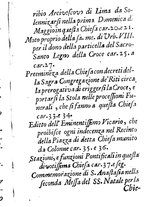 ribio Arcivoscovo di Lima da So-
lennizarsi nella prima Domenica d
Maggio in questa Chiesa car. 20.
Mo proprio della fa. me. di Urb. VIII.
per il dono della particella del Sacro-
Santo Legno della Croce car. 25.
car. 27.
Preeminenza della Chiesa con decreti del-
la Sagra Congregazione de' Riti circa
la prerogativa di erigger si la Croce, e
portarsi la Stola nelle processioni Fu-
nerali, che si fanno a questa Chiesa
car. 33. e 34.
Editto dell' Eminentissimo Vicario, che
proibisce ogni indecenza nel Recinto
della Piazza di detta Chiesa munito
da Colonne car. 35. e 36.
Stazioni, e funzioni Pontificali in questa
Chiesa da car. 37. e seg.
Commemorazione di S. Anastasia nella
seconda Messa del SS. Natale per
Chie-